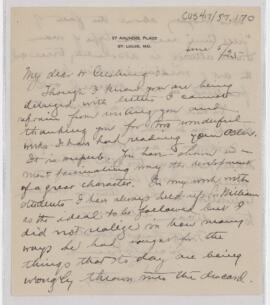 CUS417/57, 170
27 ARUNDEL PLACE
ST. LOUIS, MO.
June 5/25
My dear Dr Cushing:
Though I know you are being
deluged with letters I cannot
refrain from writing you and
thanking you for the wonderful
weeks I have had reading your Osler.
It is superb. You have shown in a
most fascinating way the development
of a great character. In my work with
students I have always held up Sir William
as the ideal to be followed but I
did not realize in how many
ways he had fought for the
things that to day are being
wrongly thrown into the discard.